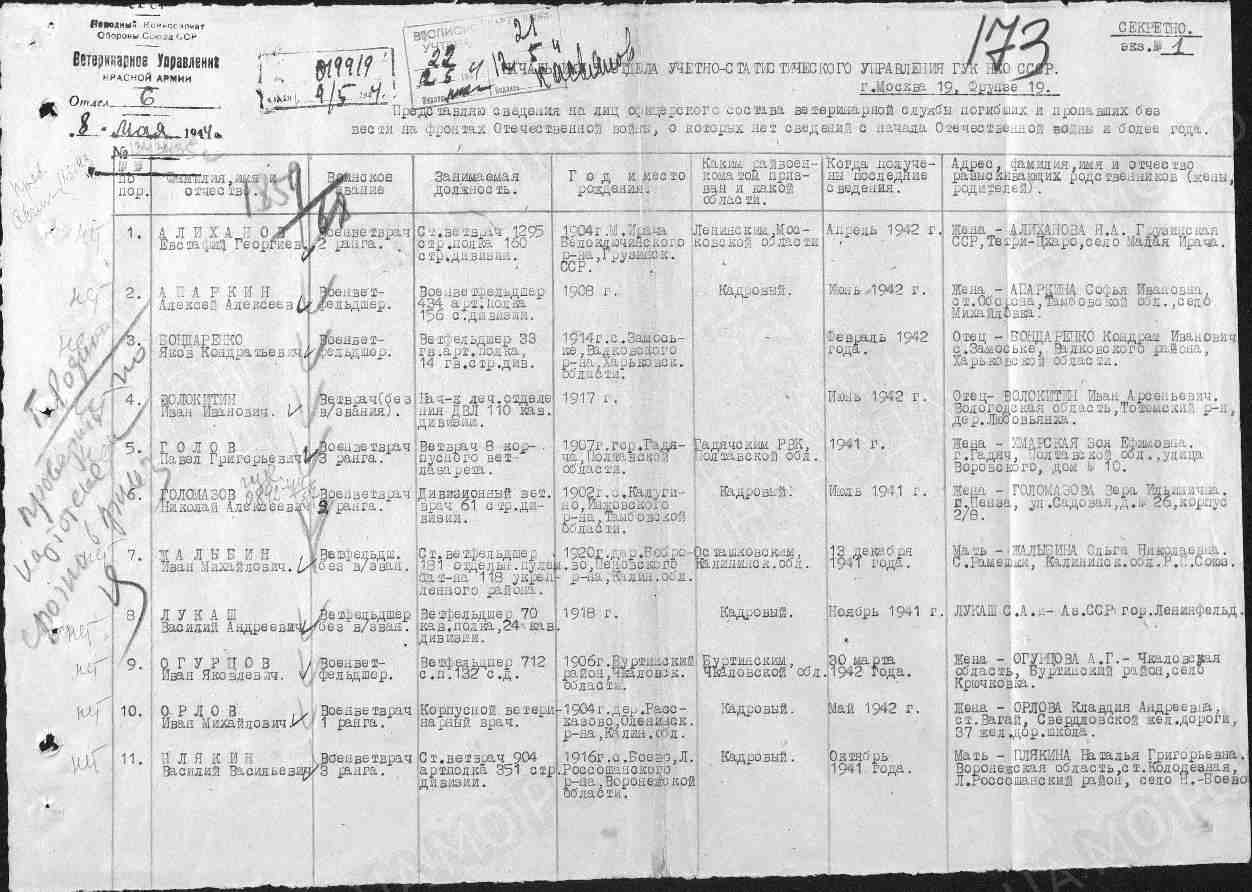 Народный Комиссариат
Обороны Союза ССР
Ветеринарное Управление
КРАСНОЙ АРМИИ
Отдел 6
8 мая 1944г.
019919
9/5
173
СЕКРЕТНО.
экз.№ 1
ОТДЕЛА УЧЕТНО-СТАТИСТИЧЕСКОГО УПРАВЛЕНИЯ ГУК НКО СССР.
г.Москва 19, Фрунзе 19.
Представляю сведения на лиц офицерского состава ветеринарной службы погибших и пропавших без
вести на фронтах Отечественной войны, о которых нет сведений с начала Отечественной войны и более года.
№№ по пор.
Фамилия, имя и отчество.
Воинское звание
Занимаемая должность.
Год и место рождения.
Каким райвоенкоматой призван и какой области.
Когда получены последние сведения.
Адрес, фамилия, имя и отчество разыскивающих родственников (жены, родителей).
1. АЛИХАНОВ Военветврач Ст.ветврач 1295 1904г.М.Ирача Ленинским, Мос- Апрель 1942 г. Жена - АЛИХАНОВА Н.А. Грузинская
Евстафий Георгиев. 2 ранга. стр.полка 160 Белоключинского ковской области ССР, Тетри-Цкаро, село Малая Ирача.
стр.дивизии. р-на, Грузинск.
ССР.
2. АПАРКИН Военвет- Военветфельдшер 1908 г. Кадровый. Июнь 1942 г. Жена - АПАРКИНА Софья Ивановна,
Алексей Алексеев фельдшер. 434 арт.полка Тамбовской обл., село
156 с.дивизии. Михайловка.
3. БОНДАРЕНКО Военвет- Ветфельдшер 33 1914г.с.Замось- Февраль 1942 Отец - БОНДАРЕНКО Кондрат Иванович
Яков Кондратьевич фельдшер. гв.арт.полка, ке, Валковского года. с.Замоське, Валковского района,
14 гв.стр.див. р-на, Харьковск. Харьковской области.
области.
4. ВОЛОКИТИН Ветврач(без Нач-к леч.отделе 1917 г. Июнь 1942 г. Отец- ВОЛОКИТИН Иван Арсеньевич.
Иван Иванович. в/звания). ния ДВЛ 110 кав. Вологодская область, Тотемский р-н,
дивизии. дер.Любовьянка.
5. ГОЛОВ Военветврач Ветврач 8 кор- 1907г.гор.Гадя- Гадячским РВК, 1941 г. Жена - ХМАРСКАЯ Зоя Ефимовна.
Павел Григорьевич 3 ранга. пусного вет- ча, Полтавской Полтавской обл. г.Гадяч, Полтавской обл., улица
лазарета. области. Воровского, дом № 10.
6. ГОЛОМАЗОВ Военветврач Дивизионный вет. 1902г.с.Калуги- Кадровый. Июль 1941 г. Жена - ГОЛОМАЗОВА Вера Ильинична.
Николай Алексеевич ранга. врач 61 стр.ди- но, Инжовского г.Пенза, ул.Садовая, д.№ 26, корпус
визии. р-на, Тамбовской 2/8.
области.
7. ЖАЛЫБИН Ветфельдш. Ст.ветфельдшер 1920г.дер.Бобро- Осташковским, 13 декабря Мать - ЖАЛЫБИНА Ольга Николаевна.
Иван Михайлович. без в/зван. 181 отдельн.пулем. во, Пеновского Калининск.обл. 1941 года. С.Рамешки, Калининск.обл.
бат-на 118 укреп- р-на, Калин.обл.
ленного района.
8 ЛУКАШ Ветфельдшер Ветфельдшер 70 1918 г. Кадровый. Ноябрь 1941 г. ЛУКАШ С.А. - Аз.ССР гор.Ленинфельд.
Василий Андреевич без в/зван. кав.полка, 24 кав.
дивизии.
9. ОГУРЦОВ Военвет- Ветфельдшер 712 1906г.Буртинский Буртинским, 30 марта Жена - ОГУРЦОВА А.Г.- Чкаловская
Иван Яковлевич. фельдшер. с.п.132 с.д. район, Чкаловск. Чкаловской обл. 1942 года. область, Буртинский район, село
области. Крючковка.
10. ОРЛОВ Военветврач Корпусной ветери- 1904г.дер.Расс- Кадровый. Май 1942 г. Жена - ОРЛОВА Клавдия Андреевна,
Иван Михайлович 1 ранга. нарный врач. казово, Оленинск. ст.Вагай, Свердловской жел.дороги,
р-на, Калин.обл. 37 жел.дор.школа.
11. ПЛЯКИН Военветврач Ст.ветврач 904 1916г.с.Боево, Л. Кадровый. Октябрь Мать - ПЛЯКИНА Наталья Григорьевна.
Василий Васильевич 3 ранга. артполка 351 стр. Россошанского 1941 года. Воронежская область, ст.Колодезная,
дивизии. р-на, Воронежской Л.Россошанский район, село Н.-Боево
области.